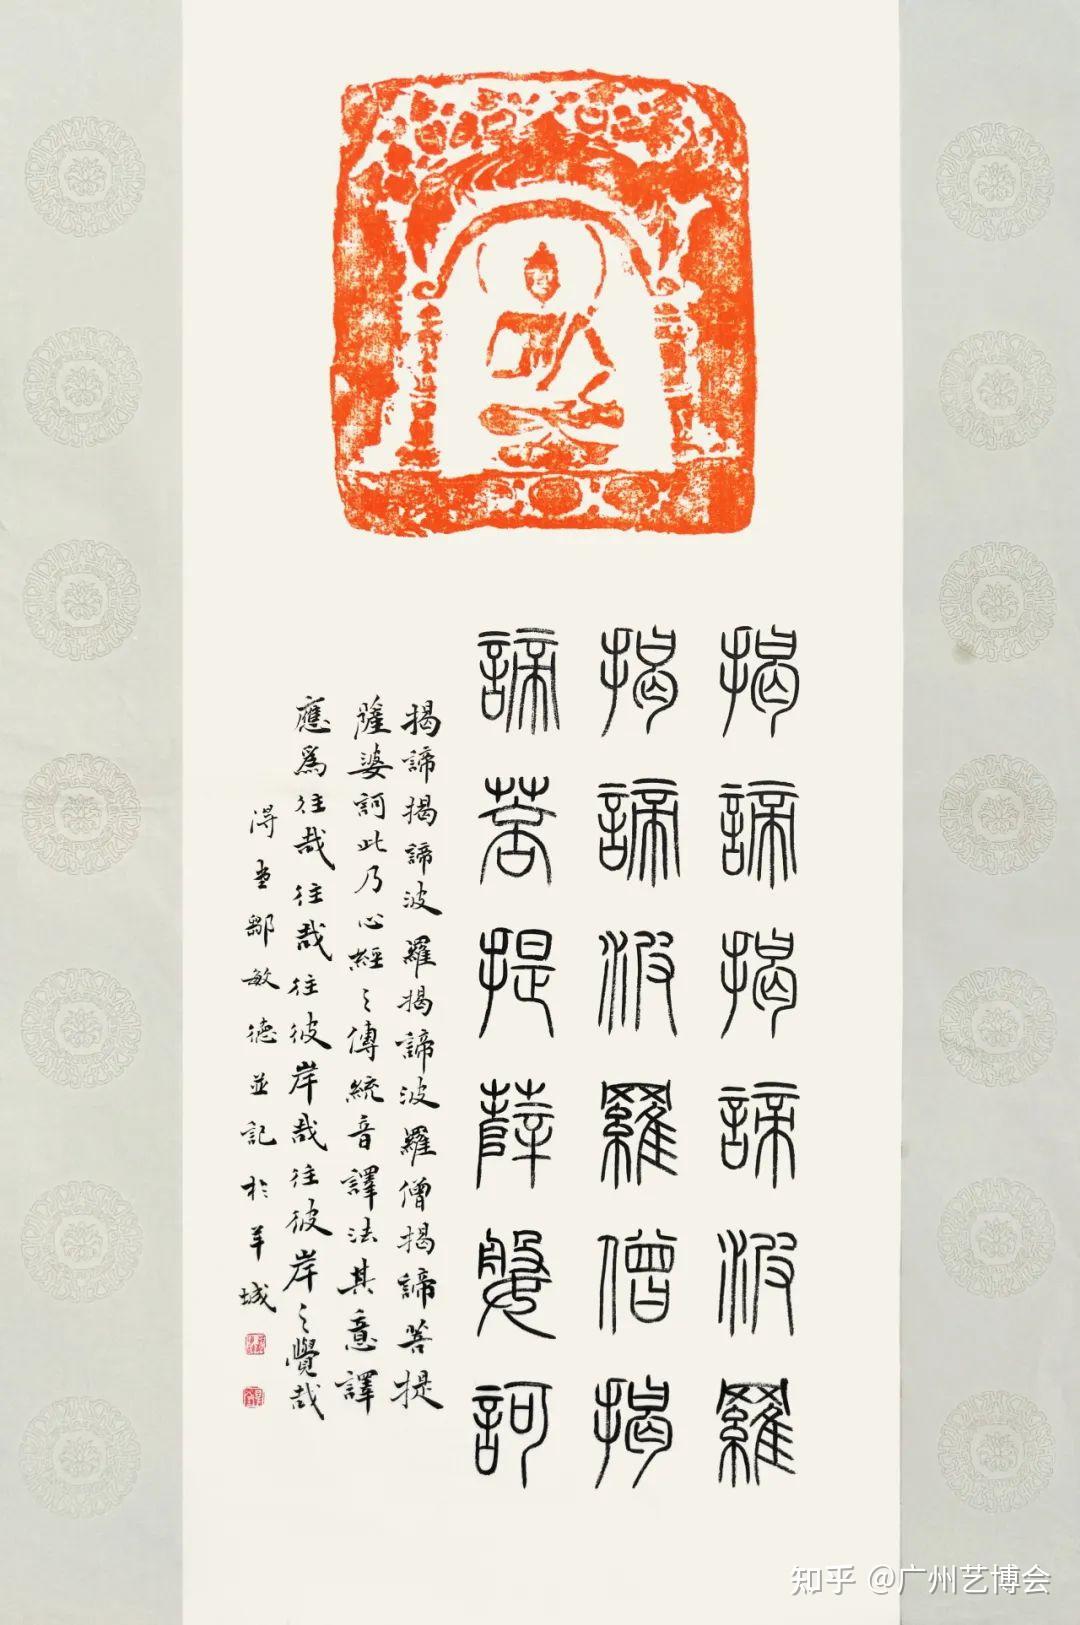 揭諦揭諦波羅
揭諦波羅僧揭
諦菩提薩婆訶
揭諦揭諦波羅揭諦波羅僧揭諦菩提
薩婆訶此乃心經之傳統音譯法其意譯
應爲往哉往哉往彼岸哉往彼岸之覺哉
得鄒敏德並記於羊城
知乎 @广州艺博会